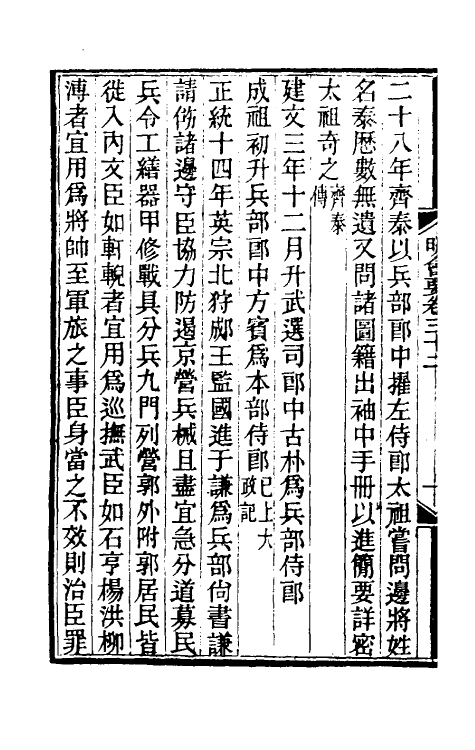 二十八年齊泰以兵部郎中擢左侍郎太祖嘗問邊將姓
名泰歷數無遺又問諸圖籍出袖中手冊以進簡要詳密
太祖奇之齊泰傳
建文三年十二月升武選司郎中古朴爲兵部侍郎
成祖初升兵部郎中方賓爲本部侍郎已上大政記
正統十四年英宗北狩郕王監國進于謙爲兵部尚書謙
請飭諸邊守臣協力防遏京營兵械且盡宜急分道募民
兵令工繕器甲修戰具分兵九門列營郭外附郭居民皆
徙入內文臣如軒輗者宜用爲巡撫武臣如石亨楊洪柳
溥者宜用爲將帥至軍旅之事臣身當之不效則治臣罪
明會要卷三十二
十